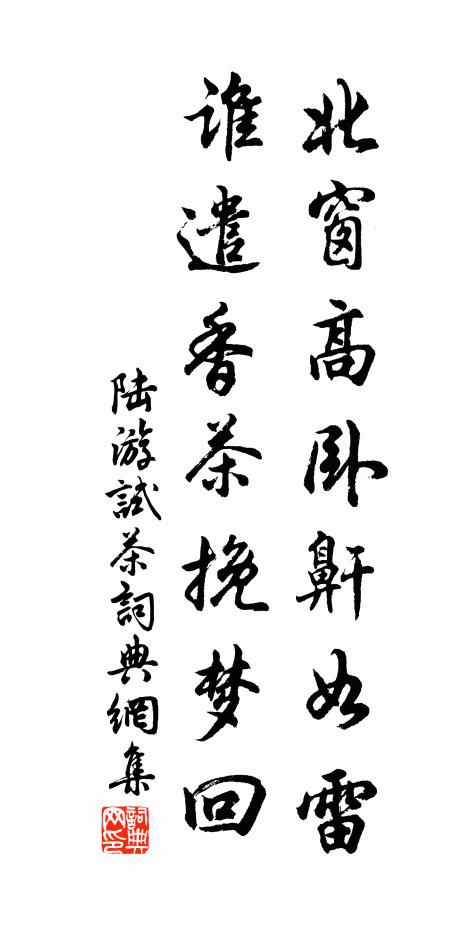 北窗高卧鼾如雷
谁遣香茶挽梦回
陆游試茶詞典網集
詞典網印